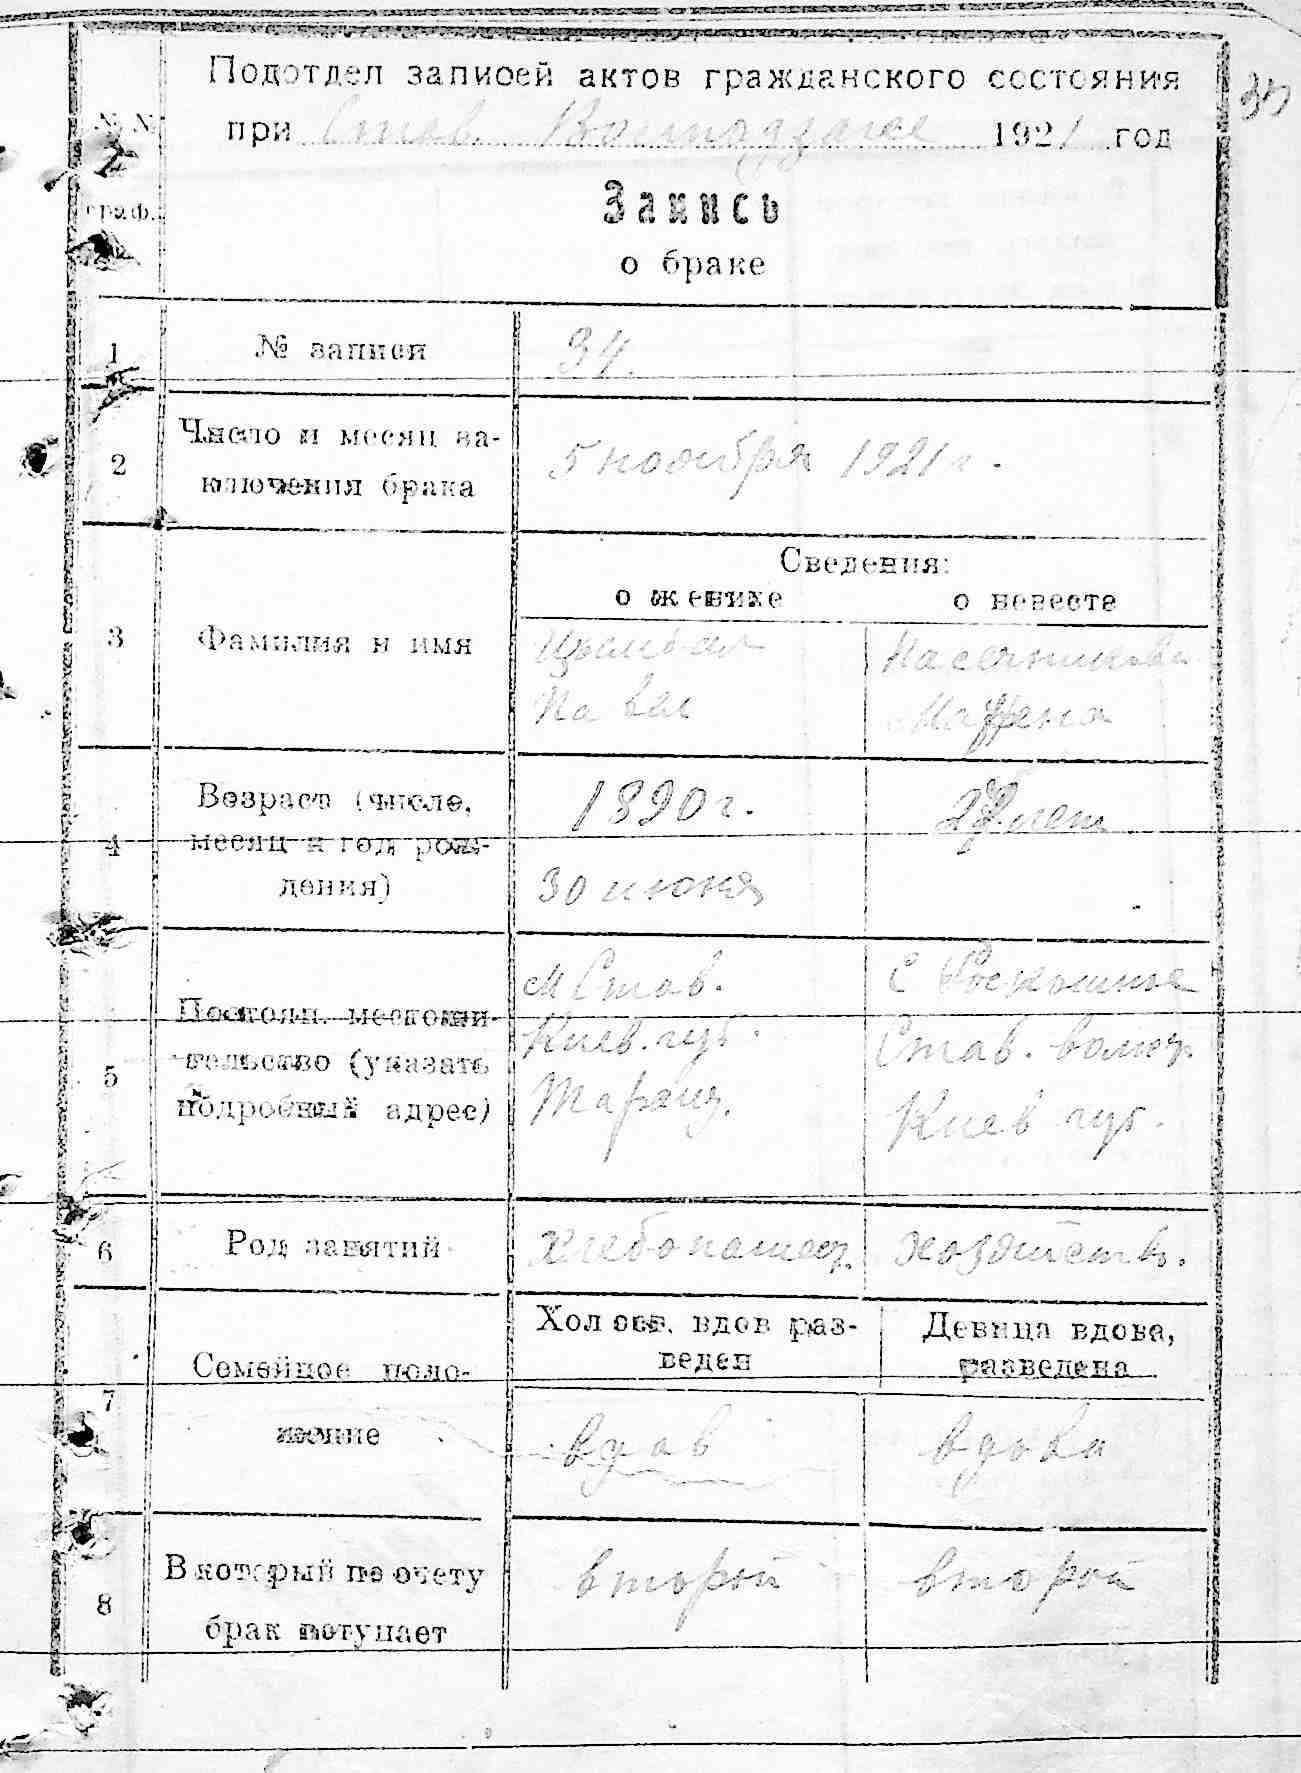 Подотдел записей актов гражданского состояния
35
№ №
граф.
при Став. 1921 год
Запись
о браке
1
№ записи
34.
2
Число и месяц за-
ключения брака
5 ноября 1921 г.
Сведения:
о женихе
о невесте
3
Фамилия и имя
Цымбал
Павел
Пасечникова
4
Возраст (число,
месяц и год рож-
дения)
1890 г.
30 июня
лет
5
Постоян. местожи-
тельство (указать
подробный адрес)
м Став.
Киев. губ.
Таращ.
с Роскошная
Став. волос.
Киев губ.
6
Род занятий
хлебопашец.
хозяйств.
7
Семейное поло-
жение
Холост. вдов раз-
веден
Девица вдова,
разведена
вдов
вдова
8
В который по счету
брак вступает
второй
второй